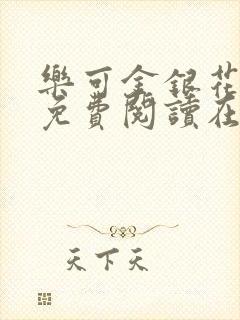 樂可金銀花
免費閱讀在
天下天